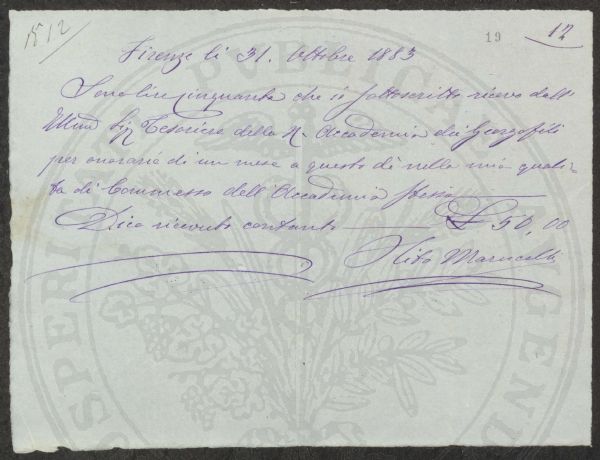 N° 12
19
12
Firenze li 31. Ottobre 1883
Sono Lire cinquanta che io sottoscritto ricevo dall'
Illmo Sig Tesoriere della R. Accademia dei Georgofili
per onorario di un mese a questo dì nella mia quali-
tà di Commesso dell'Accademia stessa
Dico ricevute contante £ 50,00
Marucelli
PUBLICA
PROSPERITATI
AUGENDAE